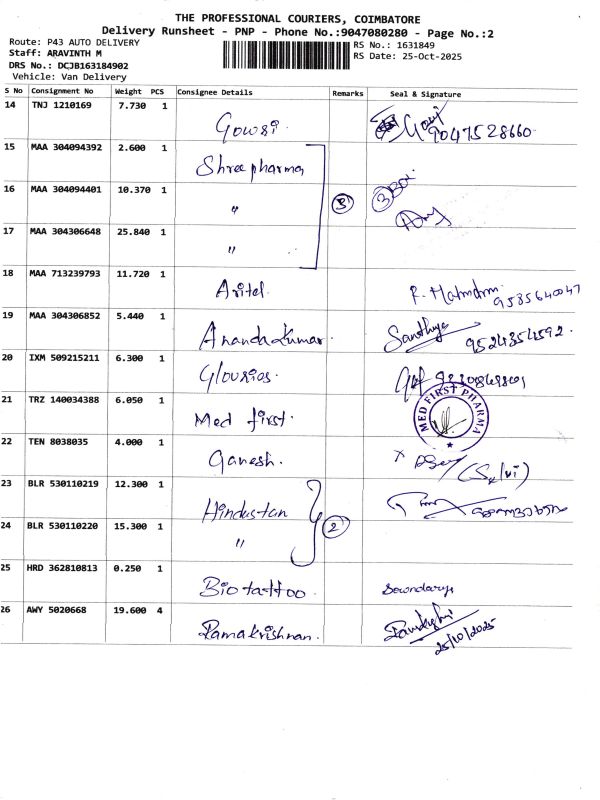 THE PROFESSIONAL COURIERS, COIMBATORE
Delivery Runsheet - PNP - Phone No.:9047080280 - Page No.:2
Route: P43 AUTO DELIVERY
RS No.: 1631849
Staff: ARAVINTH M
RS Date: 25-Oct-2025
DRS No.: DCJB163184902
Vehicle: Van Delivery
S No Consignment No Weight PCS Consignee Details Remarks Seal & Signature
14 TNJ 1210169 7.730 1 Gowsi. 9047528660
15 MAA 304094392 2.600 1 Shree pharma
16 MAA 304094401 10.370 1 " 3 3 Box
17 MAA 304306648 25.840 1 "
18 MAA 713239793 11.720 1 Aritel. 9585640047
19 MAA 304306852 5.440 1 Ananda Kumar. Santhiya 9524354592.
20 IXM 509215211 6.300 1 Glourios.
21 TRZ 140034388 6.050 1 Med first. MED FIRST PHARMA
22 TEN 8038035 4.000 1 Ganesh. (Selvi)
23 BLR 530110219 12.300 1 Hindustan
24 BLR 530110220 15.300 1 " 2
25 HRD 362810813 0.250 1 Bio tattoo. Secondarys
26 AWY 5020668 19.600 4 Ramakrishnan. 25/10/2025